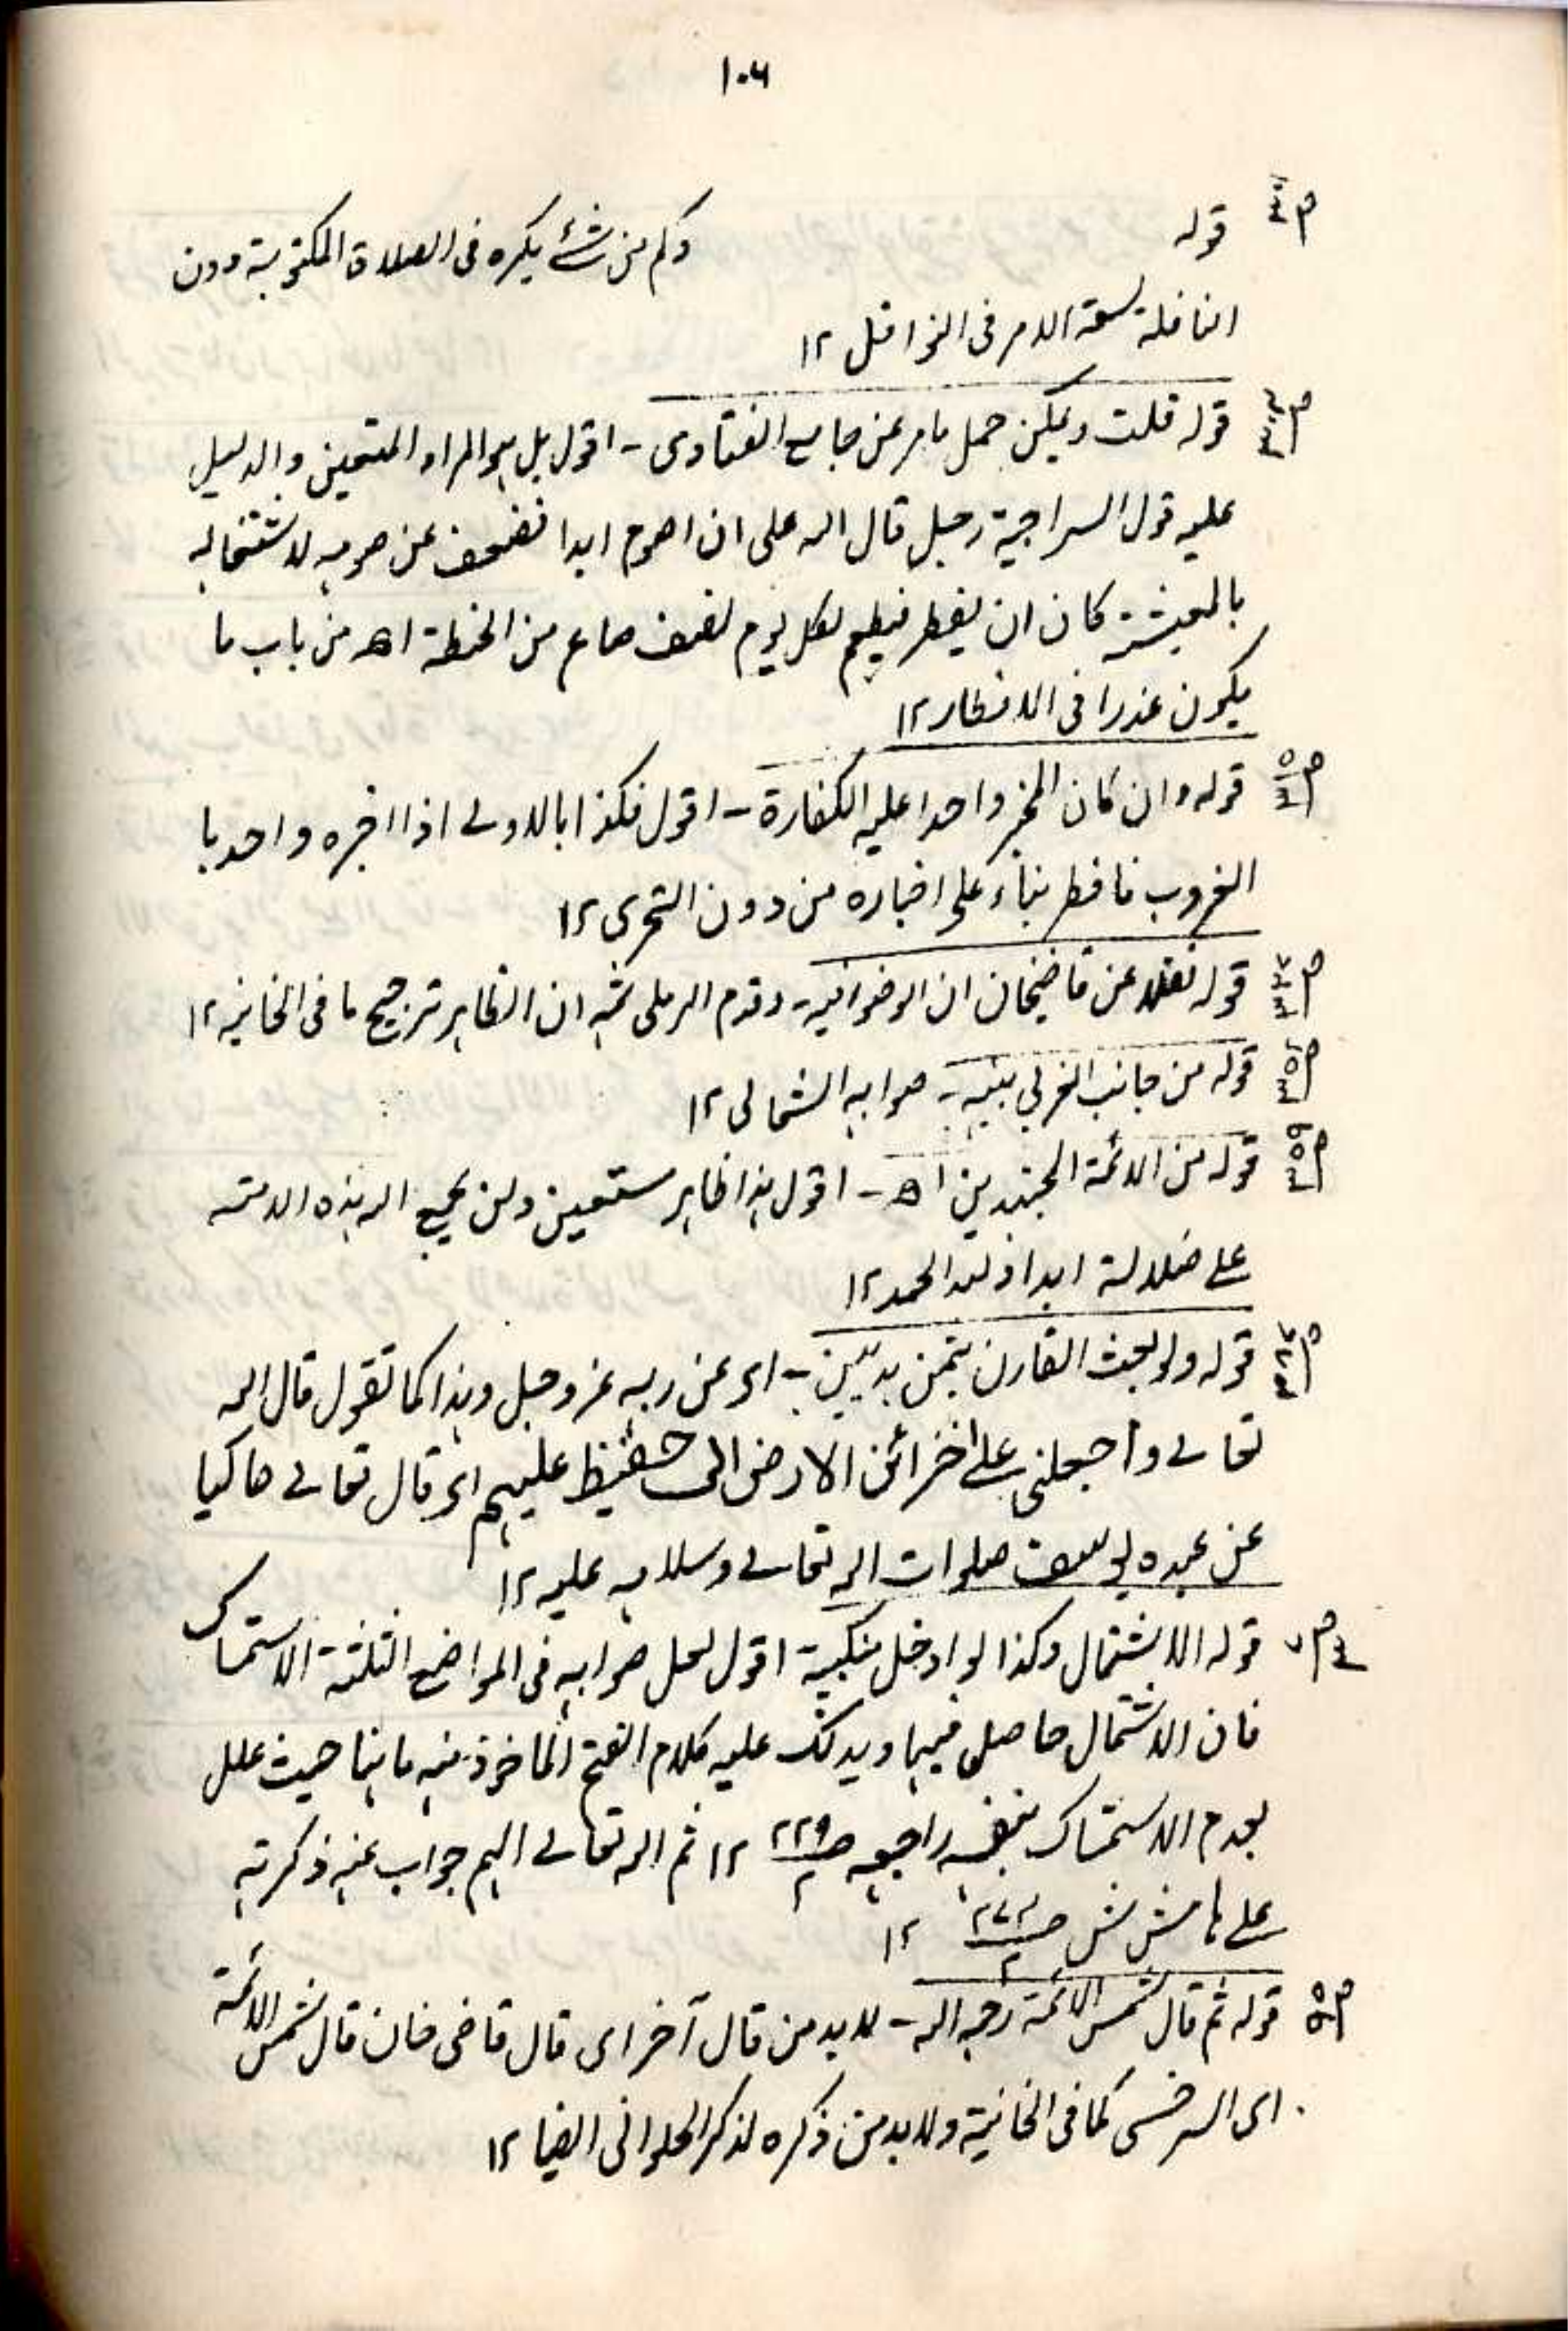 ١٠٦
قوله وكم من شئ يكره فى الصلاة المكتوبة دون
النافلة لسعة الامر فى النوافل ١٢
قوله قلت ويمكن حمل مامر عن جامع الفتاوى - اقول بل هو المراد المتعين والدليل
عليه قول السراجية رجل قال الله على ان اصوم ابدا فضعف عن صومه لاشتغاله
بالمعيشة كان ان يفطر فيطعم لكل يوم نصف صاع من الحنطة اھ من باب ما
يكون عذرا فى الافطار ١٢
قوله وان كان المخبر واحدا عليه الكفارة - اقول فكذا بالاولى اذا اخبره واحد با
الغروب فافطر بناء على اخباره من دون التحرى ١٢
قوله نقلا عن قاضيخان ان الوضوء فيه - وقدم الرملى ثمه ان الظاهر ترجيح ما فى الخانيه ١٢
قوله من جانب الغربى بنيه - صوابه الشمالى ١٢
قوله من الائمة المجتهدين اھ - اقول هذا ظاهر مستعين ولن يجمع الله هذه الامة
على ضلالة ابدا ولله الحمد ١٢
قوله ولو بعث القارن بثمن هديين - اى عن ربه عز وجل وهذا كما تقول قال الله
تعالى واجعلنى على خزائن الارض انى حفيظ عليم اى قال تعالى حاكيا
عن عبده يوسف صلوات الله تعالى وسلامه عليه ١٢
قوله الاشتمال وكذا لو ادخل منكبية اقول لعل صوابه فى المواضع الثلثة الاستمساك
فان الاشتمال حاصل فيها ويدلك عليه كلام الفتح الماخوذ منه ما هنا حيث علل
بعدم الاستمساك بنفسه راجعه صـ ٢٢٩/٢ ١٢ ثم الله تعالى الهم جواب عنه ذكرته
على هامش ش صـ ٢٧٢/٢ ١٢
قوله ثم قال شمس الائمة رحمه الله - لابد من قال آخر اى قال قاضى خان قال شمس الائمة
اى السرخسى كما فى الخانية ولابد من ذكره لذكر الحلوانى ايضا ١٢